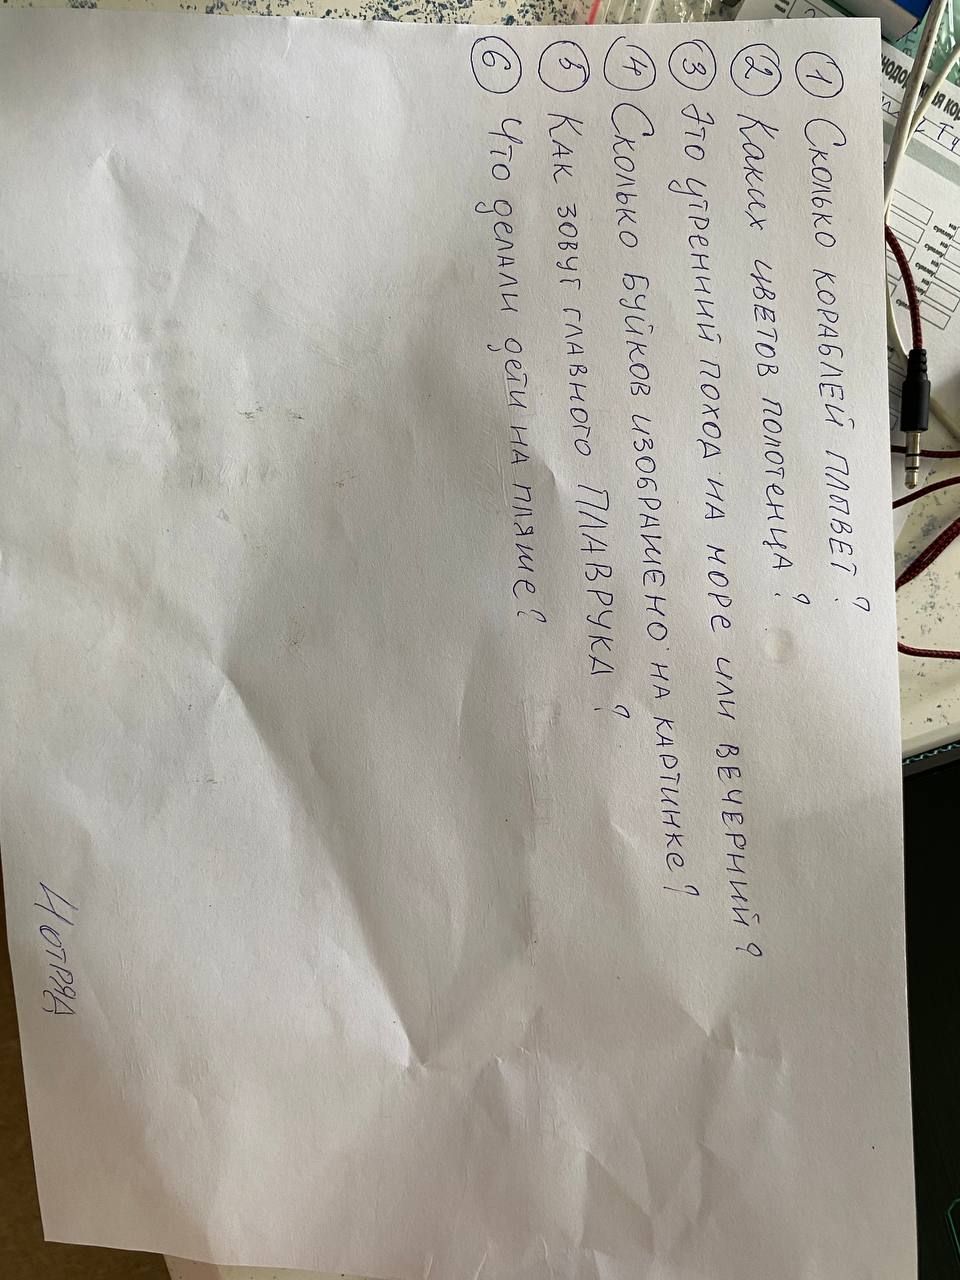 ① Сколько кораблей плывет?
② Каких цветов полотенца?
③ Это утренний поход на море или вечерний?
④ Сколько буйков изображено на картинке?
⑤ Как зовут главного ПЛАВРУКА?
⑥ Что делали дети на пляже?
4 отряд